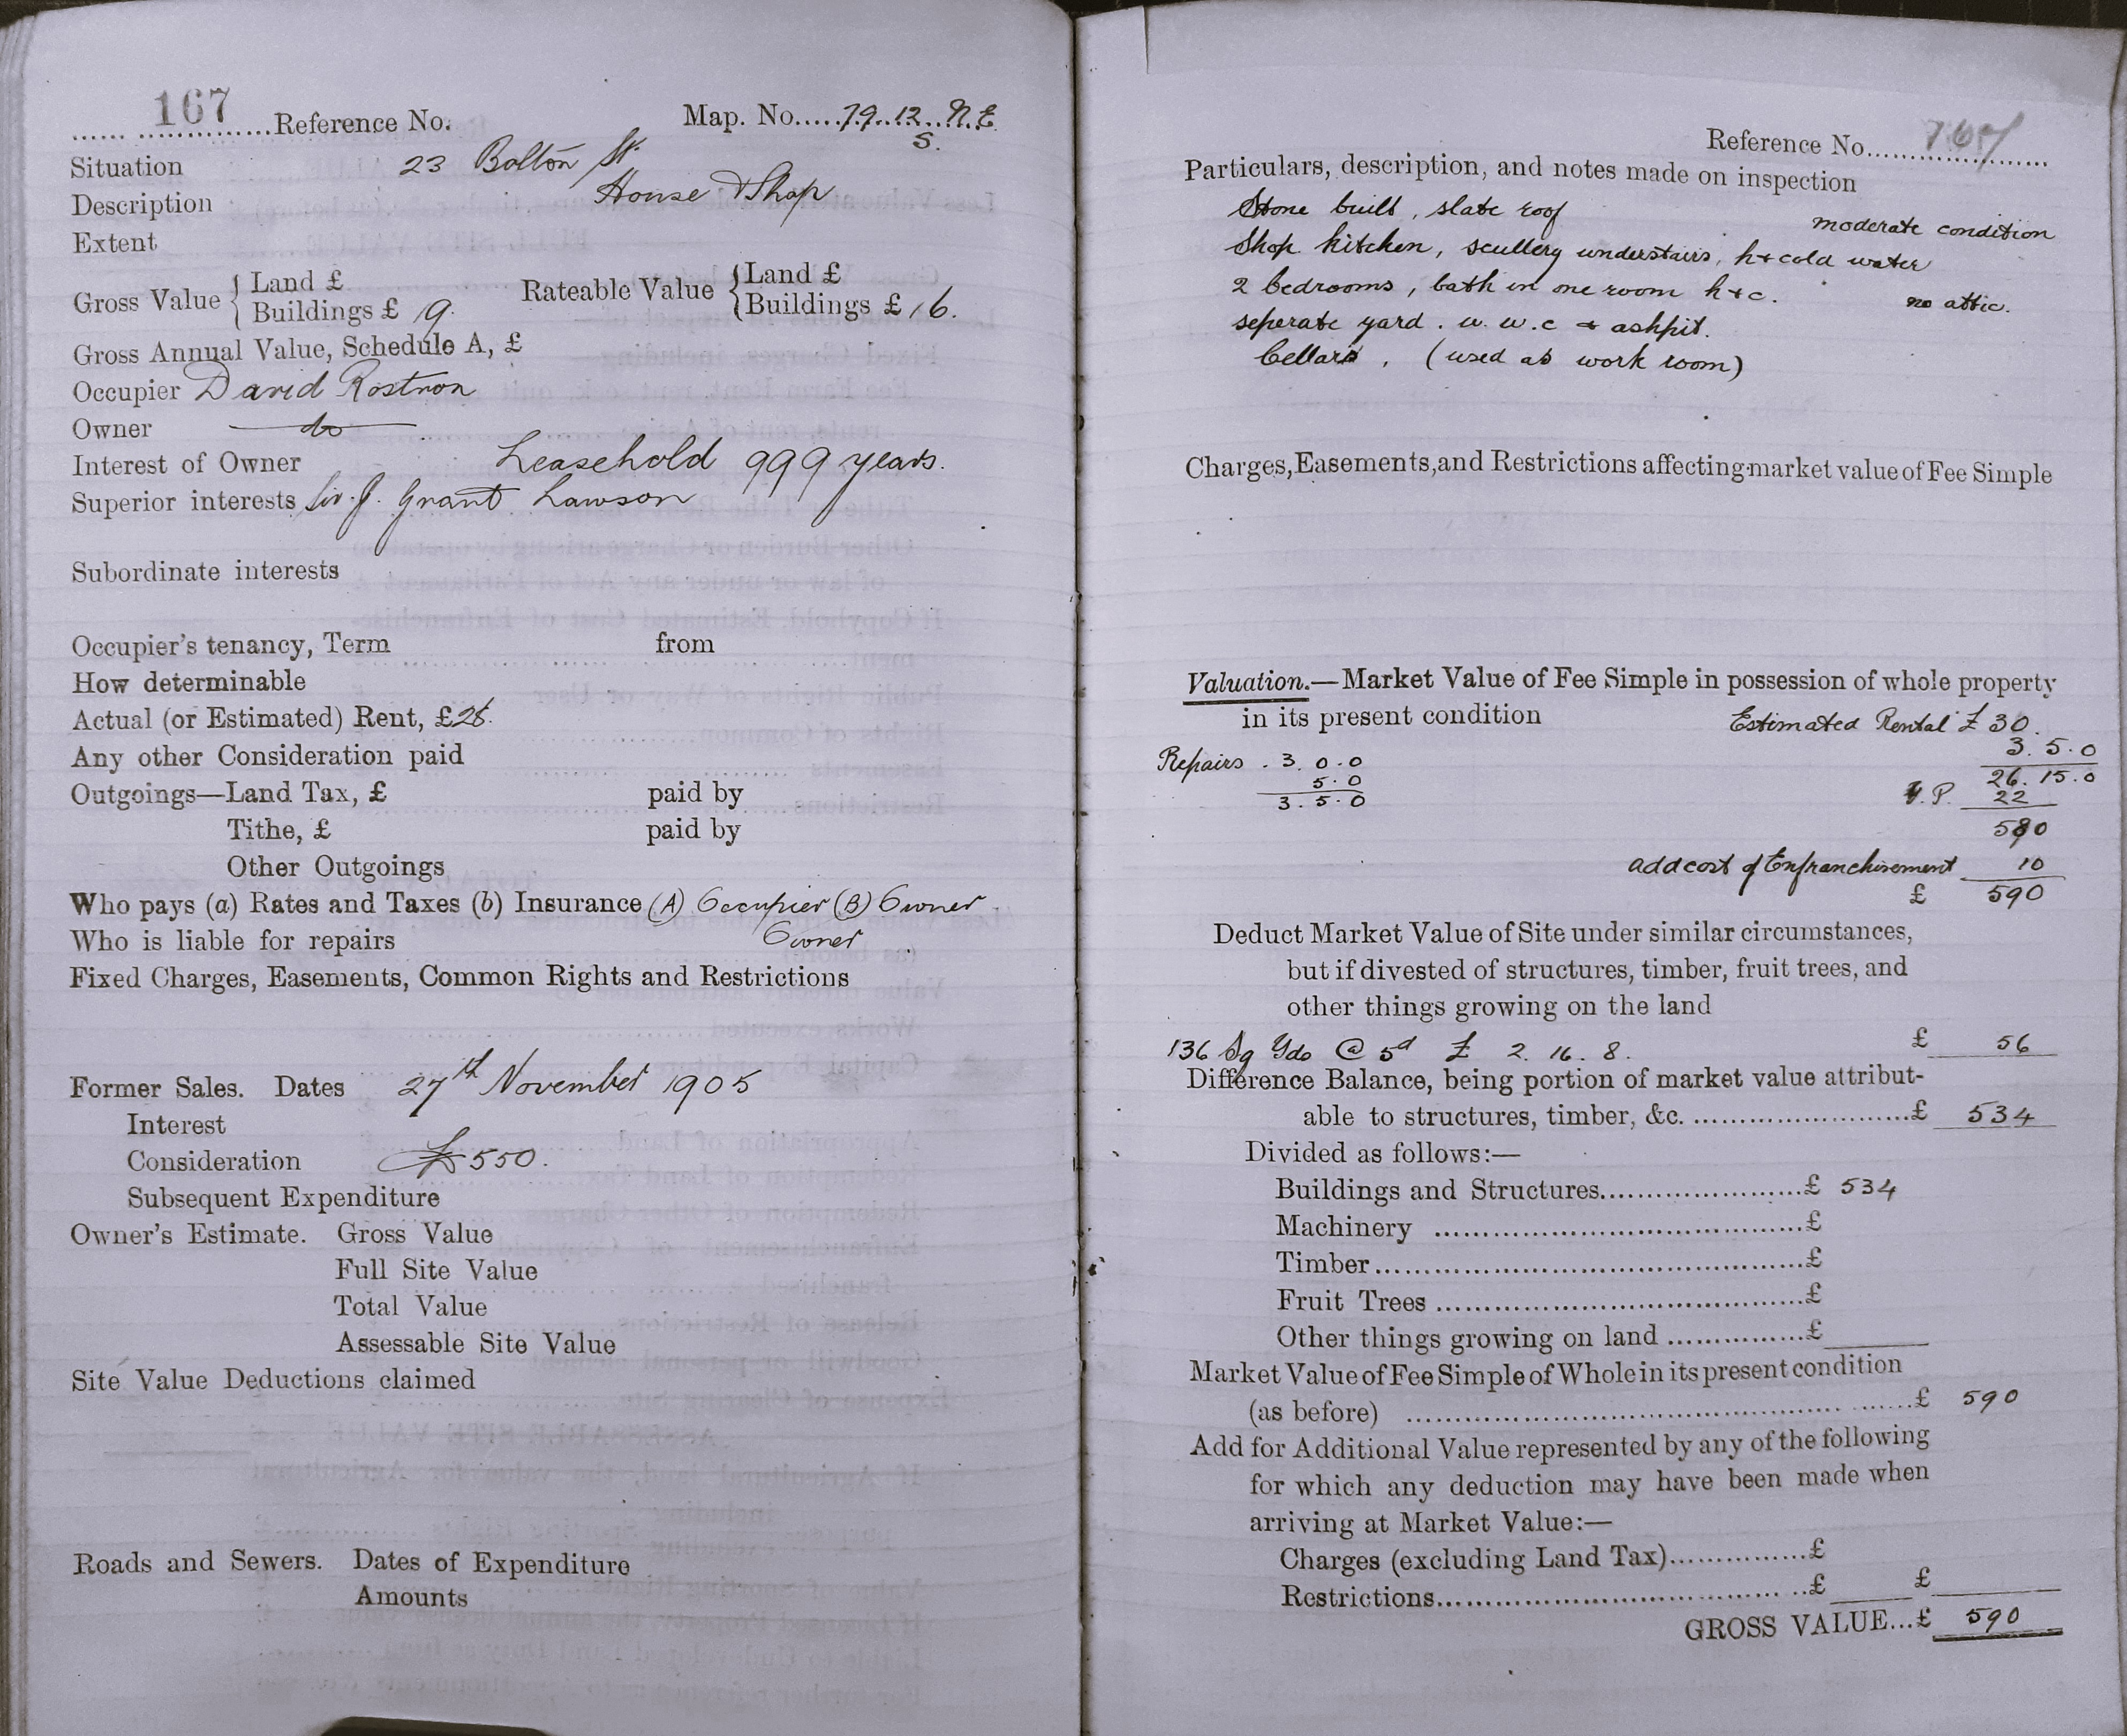 167 Reference No. Map. No. 79. 12. N.E.
S.
Situation 23 Bolton St.
Description House & Shop
Extent
Gross Value { Land £ Rateable Value { Land £
Buildings £ 19. Buildings £ 16.
Gross Annual Value, Schedule A, £
Occupier David Rostron
Owner do
Interest of Owner Leasehold 999 years.
Superior interests Sir J. Grant Lawson
Subordinate interests
Occupier's tenancy, Term from
How determinable
Actual (or Estimated) Rent, £
Any other Consideration paid
Outgoings—Land Tax, £ paid by
Tithe, £ paid by
Other Outgoings
Who pays (a) Rates and Taxes (b) Insurance (A) Occupier (B) Owner
Who is liable for repairs Owner
Fixed Charges, Easements, Common Rights and Restrictions
Former Sales. Dates 27th November 1905
Interest
Consideration £550.
Subsequent Expenditure
Owner's Estimate. Gross Value
Full Site Value
Total Value
Assessable Site Value
Site Value Deductions claimed
Roads and Sewers. Dates of Expenditure
Amounts
Reference No. 167
Particulars, description, and notes made on inspection
Stone built, slate roof moderate condition
Shop kitchen, scullery understairs, h + cold water
2 bedrooms, bath in one room h + c. no attic.
seperate yard. w. w. c + ashpit.
Cellar, (used as work room)
Charges, Easements, and Restrictions affecting market value of Fee Simple
Valuation.—Market Value of Fee Simple in possession of whole property
in its present condition Estimated Rental £ 30.
Repairs . 3. 0. 0 3. 5. 0
5. 0 26. 15. 0
3. 5. 0 Y.P. 22
580
add cost of Enfranchisement 10
£ 590
Deduct Market Value of Site under similar circumstances,
but if divested of structures, timber, fruit trees, and
other things growing on the land
136 Sq Yds @ 5d £ 2. 16. 8. £ 56
Difference Balance, being portion of market value attribut-
able to structures, timber, &c. £ 534
Divided as follows:—
Buildings and Structures £ 534
Machinery £
Timber £
Fruit Trees £
Other things growing on land £
Market Value of Fee Simple of Whole in its present condition
(as before) £ 590
Add for Additional Value represented by any of the following
for which any deduction may have been made when
arriving at Market Value:—
Charges (excluding Land Tax) £
Restrictions £ £
GROSS VALUE...£ 590